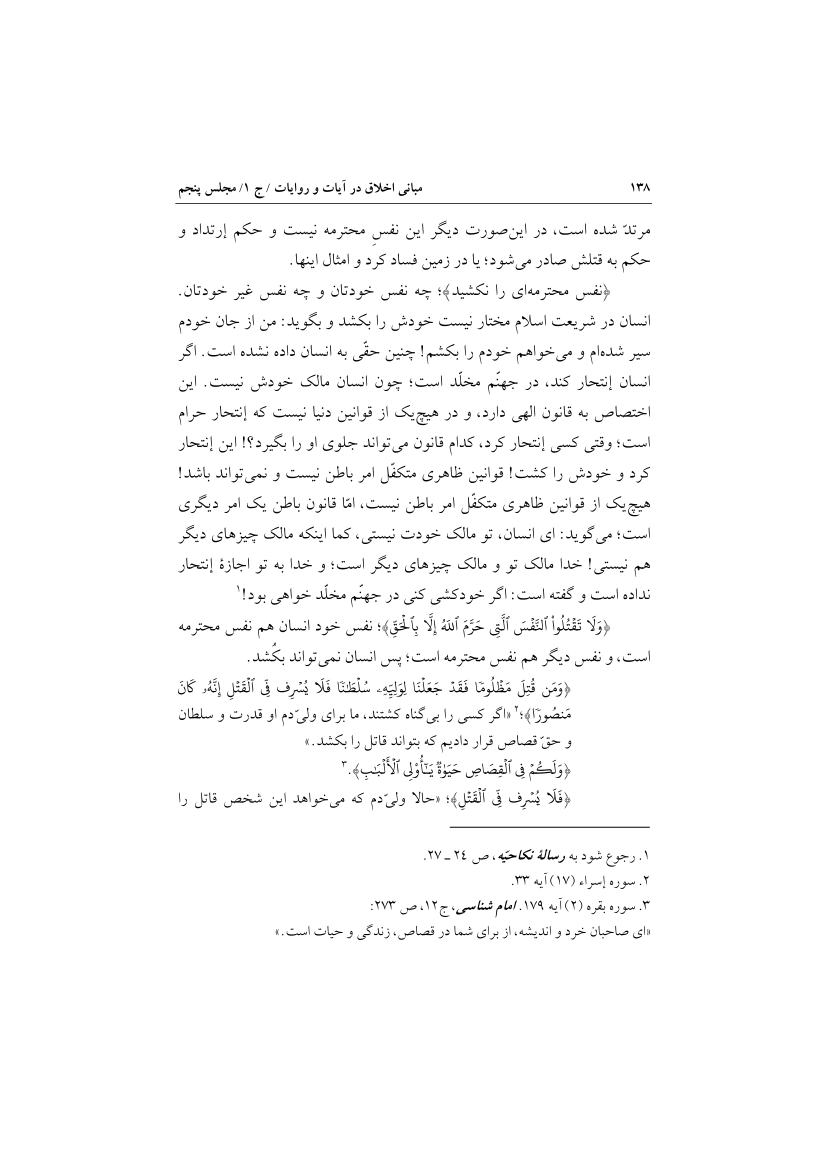 ۱۳۸ مبانی اخلاق در آیات و روایات / ج ۱/ مجلس پنجم
مرتدّ شده است، در این‌صورت دیگر این نفسِ محترمه نیست و حکم إرتداد و
حکم به قتلش صادر می‌شود؛ یا در زمین فساد کرد و امثال اینها.
﴿نفس محترمه‌ای را نکشید﴾؛ چه نفس خودتان و چه نفس غیر خودتان.
انسان در شریعت اسلام مختار نیست خودش را بکشد و بگوید: من از جان خودم
سیر شده‌ام و می‌خواهم خودم را بکشم! چنین حقّی به انسان داده نشده است. اگر
انسان إنتحار کند، در جهنّم مخلّد است؛ چون انسان مالک خودش نیست. این
اختصاص به قانون الهی دارد، و در هیچ‌یک از قوانین دنیا نیست که إنتحار حرام
است؛ وقتی کسی إنتحار کرد، کدام قانون می‌تواند جلوی او را بگیرد؟! این إنتحار
کرد و خودش را کشت! قوانین ظاهری متکفّل امر باطن نیست و نمی‌تواند باشد!
هیچ‌یک از قوانین ظاهری متکفّل امر باطن نیست، امّا قانون باطن یک امر دیگری
است؛ می‌گوید: ای انسان، تو مالک خودت نیستی، کما اینکه مالک چیزهای دیگر
هم نیستی! خدا مالک تو و مالک چیزهای دیگر است؛ و خدا به تو اجازهٔ إنتحار
نداده است و گفته است: اگر خودکشی کنی در جهنّم مخلّد خواهی بود!۱
﴿وَلَا تَقْتُلُواْ ٱلنَّفْسَ ٱلَّتِي حَرَّمَ ٱللَهُ إِلَّا بِٱلْحَقِّ﴾؛ نفس خود انسان هم نفس محترمه
است، و نفس دیگر هم نفس محترمه است؛ پس انسان نمی‌تواند بکُشد.
﴿وَمَن قُتِلَ مَظْلُومًا فَقَدْ جَعَلْنَا لِوَلِيِّهِۦ سُلْطَٰنًا فَلَا يُسْرِف فِّي ٱلْقَتْلِ إِنَّهُۥ كَانَ
مَنصُورًا﴾؛۲ «اگر کسی را بی‌گناه کشتند، ما برای ولیّ‌دم او قدرت و سلطان
و حقّ قصاص قرار دادیم که بتواند قاتل را بکشد.»
﴿وَلَكُمْ فِي ٱلْقِصَاصِ حَيَوٰةٌ يَٰٓأُوْلِي ٱلْأَلْبَٰبِ﴾.۳
﴿فَلَا يُسْرِف فِّي ٱلْقَتْلِ﴾؛ «حالا ولیّ‌دم که می‌خواهد این شخص قاتل را
۱. رجوع شود به رسالهٔ نکاحیّه، ص ۲۴ ـ ۲۷.
۲. سوره إسراء (۱۷) آیه ۳۳.
۳. سوره بقره (۲) آیه ۱۷۹. امام شناسی، ج۱۲، ص ۲۷۳:
«ای صاحبان خرد و اندیشه، از برای شما در قصاص، زندگی و حیات است.»